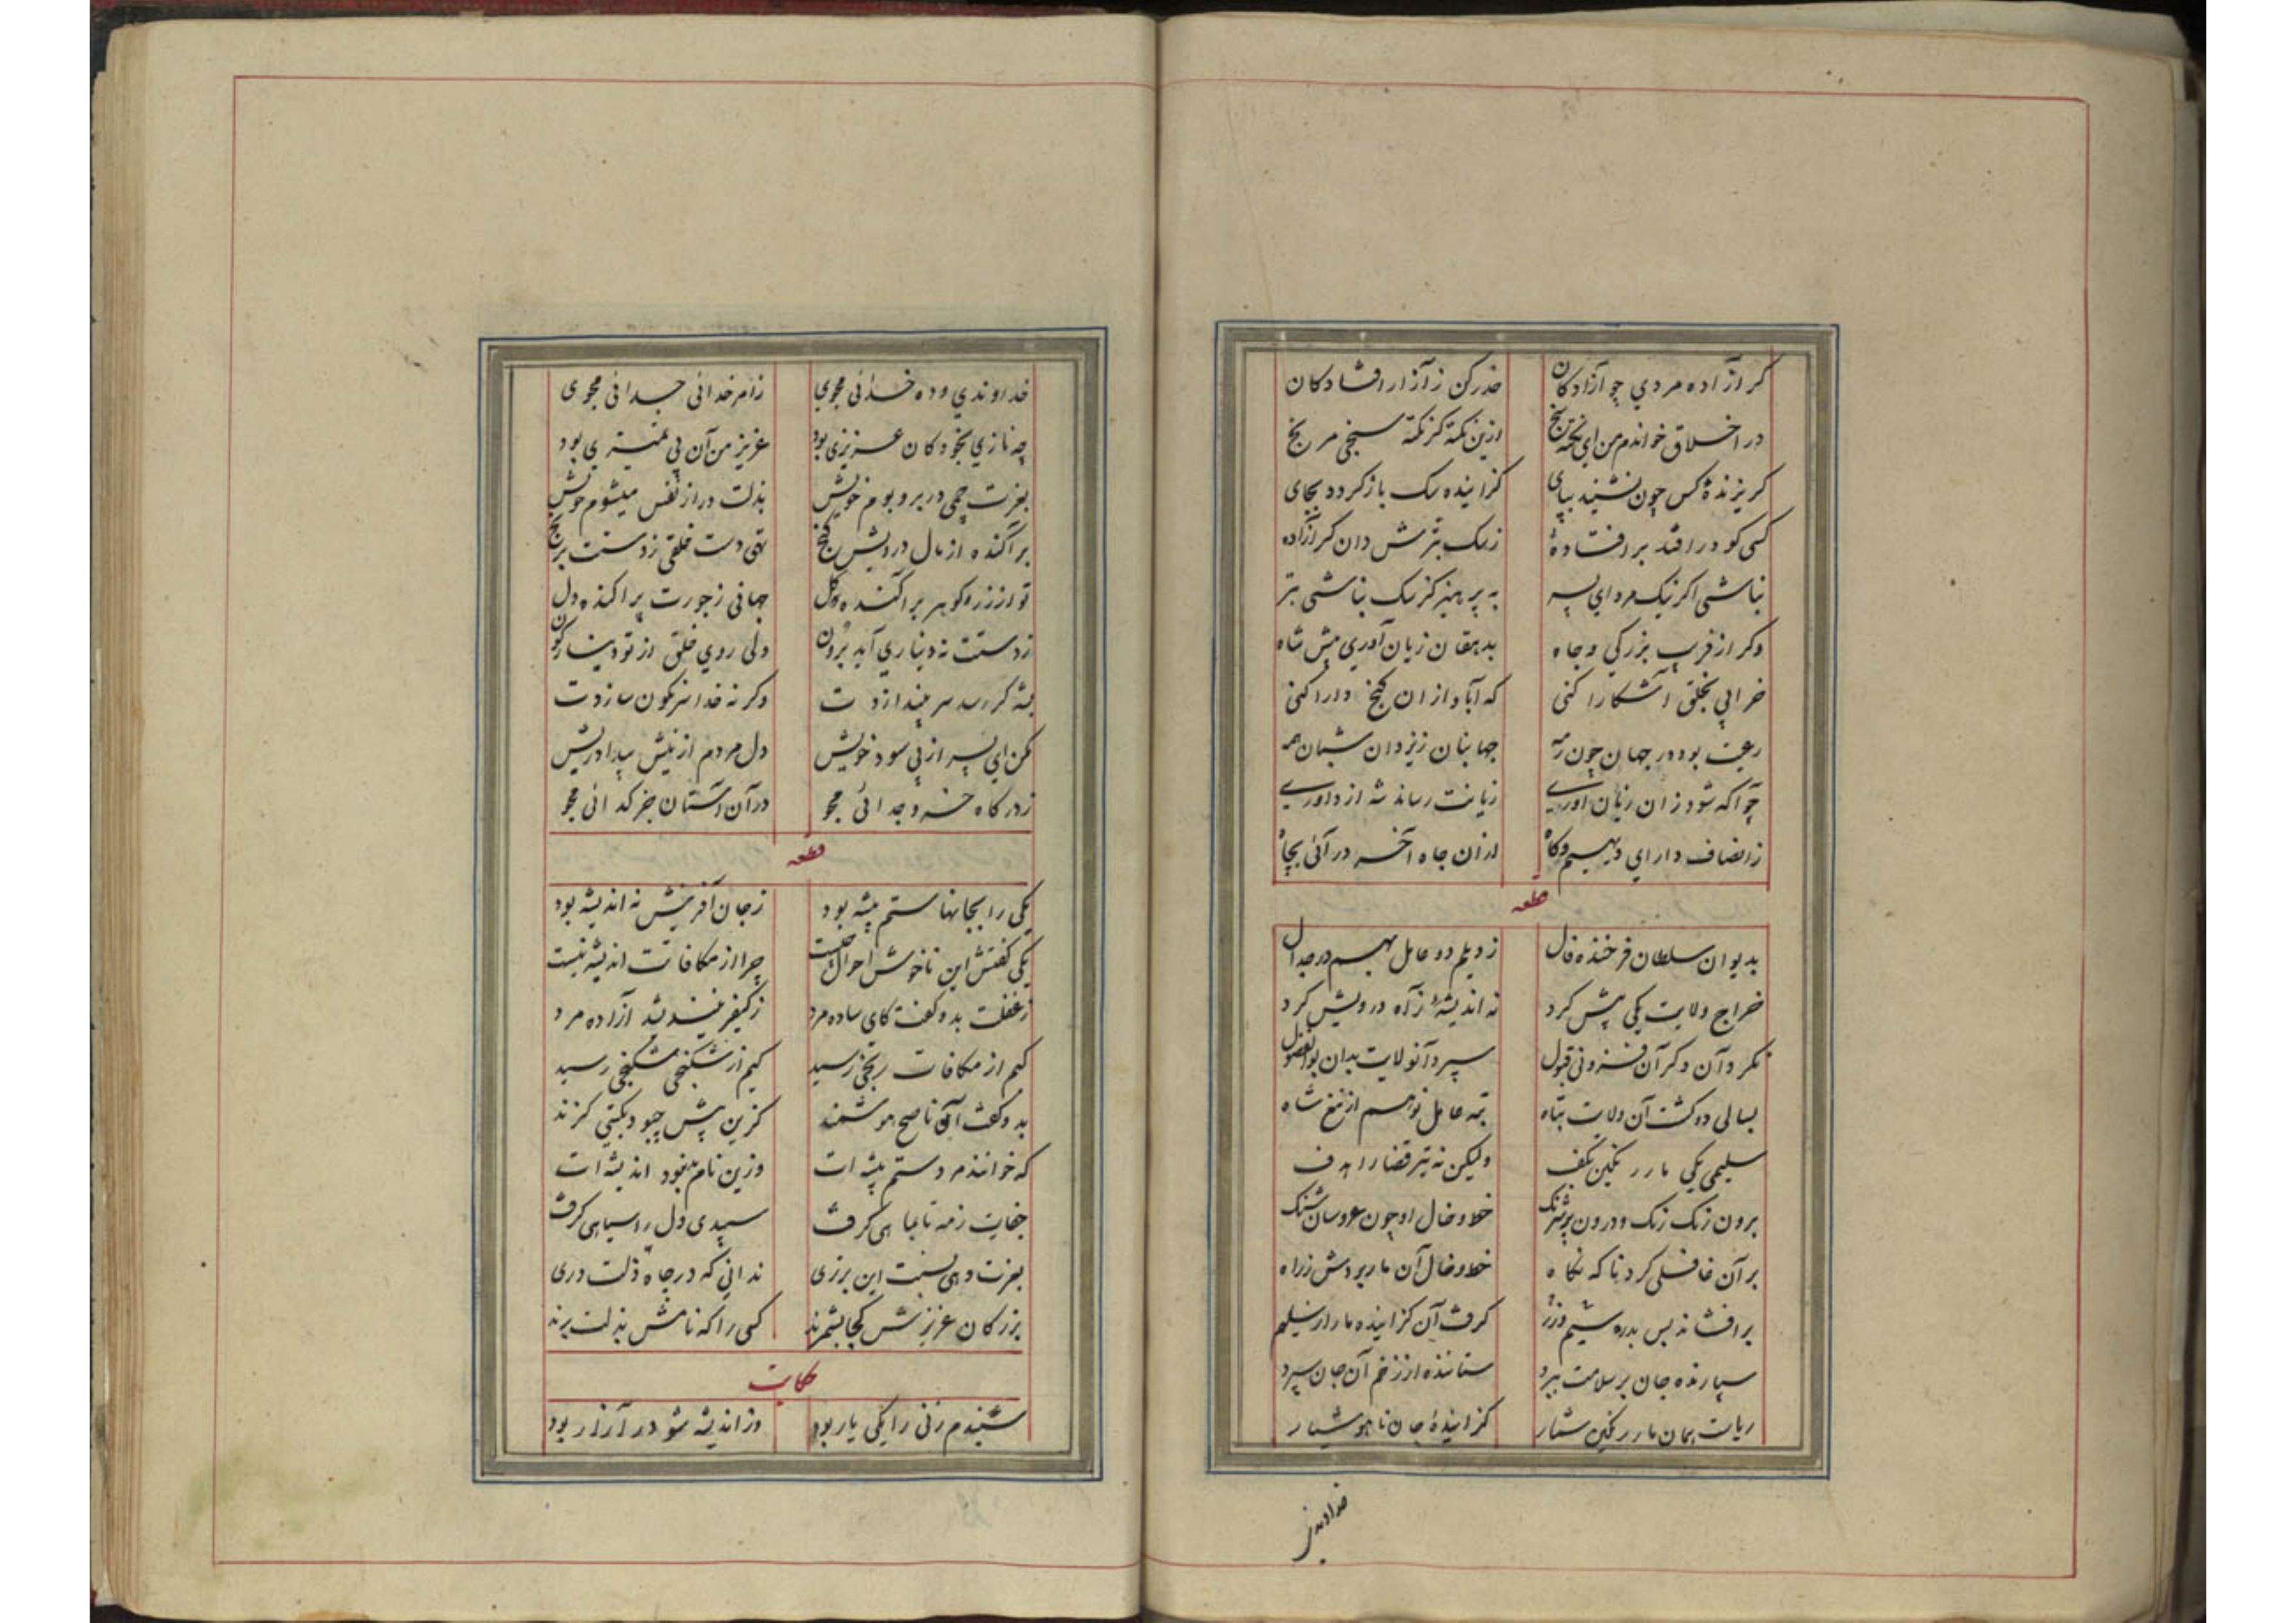 گر آزاده مردی چو آزادگان حذر کن ز آزار افتادگان
در اخلاق خواندم من ای نکته سنج ازین نکته کز نکته سنجی مرنج
گریزندهٔ کس چون نشیند بپای گزاینده سگ بازگردد بجای
کسی کو درافتد بر افتادهٔ ز سگ بترش دان گر آزاده
نباشی اگر نیک مرد ای پسر به پرهیز کز سگ نباشی بتر
وگر از فریب بزرگی و جاه بدهقان زیان آوری پیش شاه
خرابی بخلق آشکارا کنی که آباد از ان گنج دارا کنی
رعیت بود در جهان چون رمه جهانبان ز یزدان شبان همه
چو آگه شود زان زیان آوری زیانت رساند شه از داوری
ز انصاف دارای دیهیم و گاه از ان جاه آخر درآئی بچاه
قطعه
بدیوان سلطان فرخنده فال ز دیلم دو عامل بهم در جدال
خراج ولایت یکی پیش کرد نه اندیشهٔ ز آه درویش کرد
نکرد آن دگر آن فزونی قبول سپرد آنولایت بدان بوالفضول
بسالی دو گشت آن ولایت تباه تبه عامل نو هم از تیغ شاه
سلیمی یکی مار رنگین بکف ولیکن نه تیر قضا را هدف
برون رنگ رنگ و درون پر شرنگ خط و خال او چون عروسان شنگ
بر آن غافلی کرد ناگه نگاه خط و خال آن مار بردش ز راه
برافشاند بس بدره سیم و زر گرفت آن گزاینده مار از سلیم
سپارنده جان بر سلامت ببرد ستاننده از زخم آن جان سپرد
ریاست همان مار رنگین شمار گزایندهٔ جان ناهوشیار
خداوندی
خداوندی و ده خدائی مجوی ز امر خدائی جدائی مجوی
چه نازی بخود کان عزیزی بود عزیز من آن بی تمیزی بود
بعزت چمی در بر و بوم خویش بذلت در از نفس میشوم خویش
برآگنده از مال درویش گنج تهی دست خلقی ز دستت برنج
تو از زر و گوهر برآگنده دل جهانی ز جورت پراگنده دل
ز دستت نه دیناری آید برون ولی روی خلق از تو دینارگون
بشه گر رسد سر بیندازدت وگر نه خدا سرنگون سازدت
مکن ای پسر از پی سود خویش دل مردم از نیش بیداد ریش
ز درگاه خسرو جدائی مجو در آن آستان جز گدائی مجو
قطعه
یکی را بجانها ستم پیشه بود ز جان آفرینش نه اندیشه بود
یکی گفتش این ناخوش احوال چیست چرا از مکافاتت اندیشه نیست
ز غفلت بدو گفت کای ساده مرد ز کیفر نیندیشد آزاده مرد
کیم از مکافات رنجی رسید کیم از شکنجی شکنجی رسید
بدو گفت آن ناصح هوشمند کزین بیش چبود بگیتی گزند
که خوانند مردم ستم پیشه ات وزین نام نبود اندیشه ات
جفایت ز مه تا بماهی گرفت سپیدی دل را سیاهی گرفت
بعزت دهی نسبت این برتری ندانی که در چاه ذلت دری
بزرگان عزیزش کجا بشمرند کسی را که نامش بذلت برند
حکایت
شنیدم زنی را یکی یار بود وز اندیشه شو در آزار بود